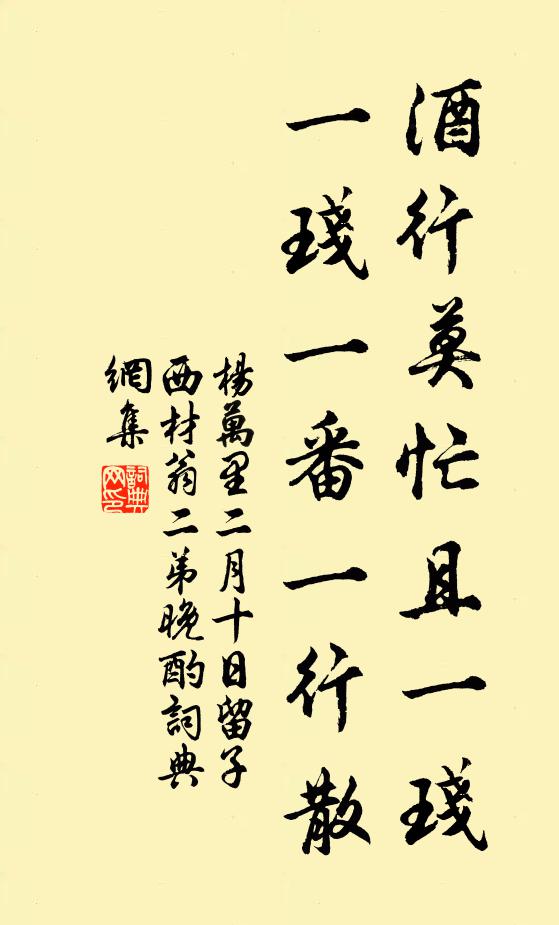 酒行莫忙且一琖
一琖一番一行散
楊萬里二月十日留子
西材翁二弟晚酌詞典
網集
詞典網印